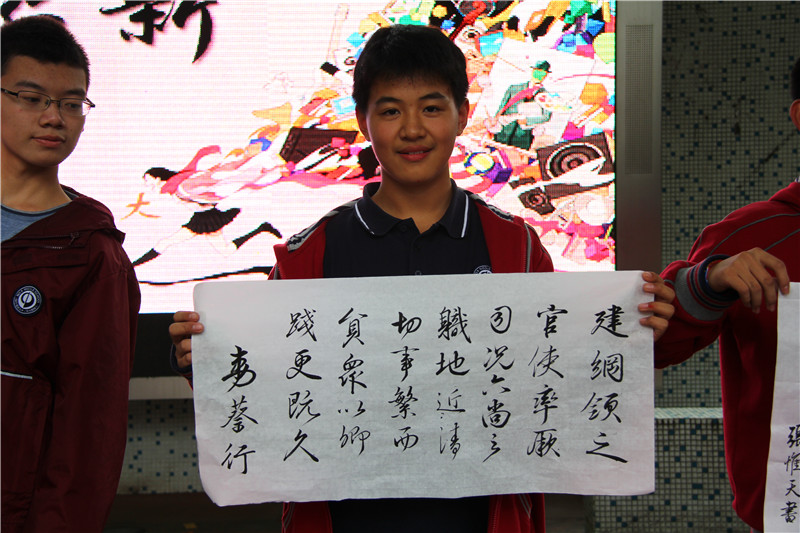 新
大
建綱領之
官使率厥
司況六尚之
軄地近清
切事繁而
貟衆以卿
踐更既久
蔡行
張惟天書